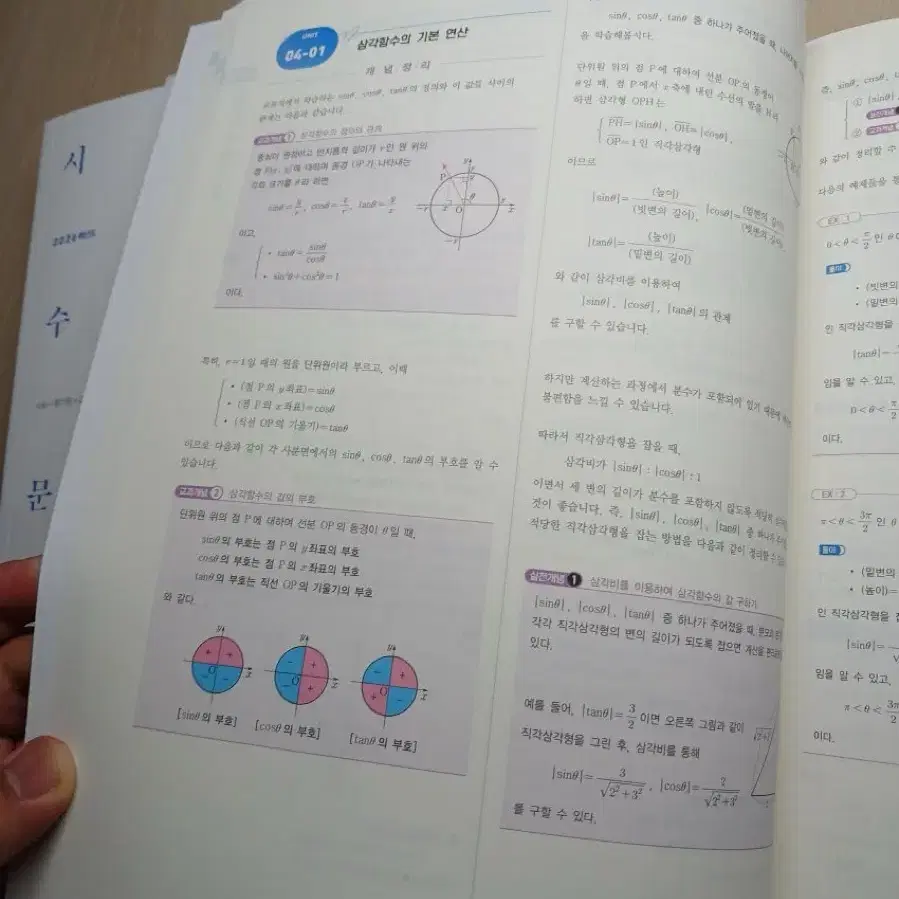 시
수
문
UNIT
04-01
삼각함수의 기본 연산
개 념 정 리
교과서에서 학습하는 sinθ, cosθ, tanθ의 정의와 이 값들 사이의
관계는 다음과 같습니다.
교과개념 1 삼각함수의 정의와 관계
중심이 원점이고 반지름의 길이가 r인 원 위의
점 P(x, y)에 대하여 동경 OP가 나타내는
각의 크기를 θ라 하면
sinθ=y/r, cosθ=x/r, tanθ=y/x
이고,
• tanθ=sinθ/cosθ
• sin²θ+cos²θ=1
이다.
특히, r=1일 때의 원을 단위원이라 부르고, 이때
• (점 P의 y좌표)=sinθ
• (점 P의 x좌표)=cosθ
• (직선 OP의 기울기)=tanθ
이므로 다음과 같이 각 사분면에서의 sinθ, cosθ, tanθ의 부호를 알 수
있습니다.
교과개념 2 삼각함수의 값의 부호
단위원 위의 점 P에 대하여 선분 OP의 동경이 θ일 때,
sinθ의 부호는 점 P의 y좌표의 부호
cosθ의 부호는 점 P의 x좌표의 부호
tanθ의 부호는 직선 OP의 기울기의 부호
와 같다.
[sinθ의 부호] [cosθ의 부호] [tanθ의 부호]
sinθ, cosθ, tanθ 중 하나가 주어졌을 때,
을 학습해봅시다.
단위원 위의 점 P에 대하여 선분 OP의 동경이
θ일 때, 점 P에서 x축에 내린 수선의 발을 H라
하면 삼각형 OPH는
PH=|sinθ|, OH=|cosθ|,
OP=1인 직각삼각형
이므로
|sinθ|=(높이)/(빗변의 길이), |cosθ|=(밑변의 길이)/(빗변의 길이),
|tanθ|=(높이)/(밑변의 길이)
와 같이 삼각비를 이용하여
|sinθ|, |cosθ|, |tanθ|의 관계
를 구할 수 있습니다.
하지만 계산하는 과정에서 분수가 포함되어 있기 때문에
불편함을 느낄 수 있습니다.
따라서 직각삼각형을 잡을 때,
삼각비가 |sinθ| : |cosθ| : 1
이면서 세 변의 길이가 분수를 포함하지 않도록 적당히
것이 좋습니다. 즉, |sinθ|, |cosθ|, |tanθ| 중 하나가
적당한 직각삼각형을 잡는 방법을 다음과 같이 정리할 수
실전개념 1 삼각비를 이용하여 삼각함수의 값 구하기
|sinθ|, |cosθ|, |tanθ| 중 하나가 주어졌을 때,
각각 직각삼각형의 변의 길이가 되도록 잡으면 계산을
있다.
예를 들어, |tanθ|=3/2이면 오른쪽 그림과 같이
직각삼각형을 그린 후, 삼각비를 통해
|sinθ|=3/√(2²+3²), |cosθ|=2/√(2²+3²)
를 구할 수 있다.
즉, sinθ, cosθ,
① |sinθ|
②
와 같이 정리할 수
다음의 예제들을
EX 1
0<θ<π/2인 θ
풀이
• (빗변의
• (밑변의
인 직각삼각형을
|tanθ|=
임을 알 수 있고,
0<θ<π/2
이다.
EX 2
π<θ<3π/2인 θ
풀이
• (밑변의
• (높이)=
인 직각삼각형을
|sinθ|=
임을 알 수 있고,
π<θ<3π/2
이다.